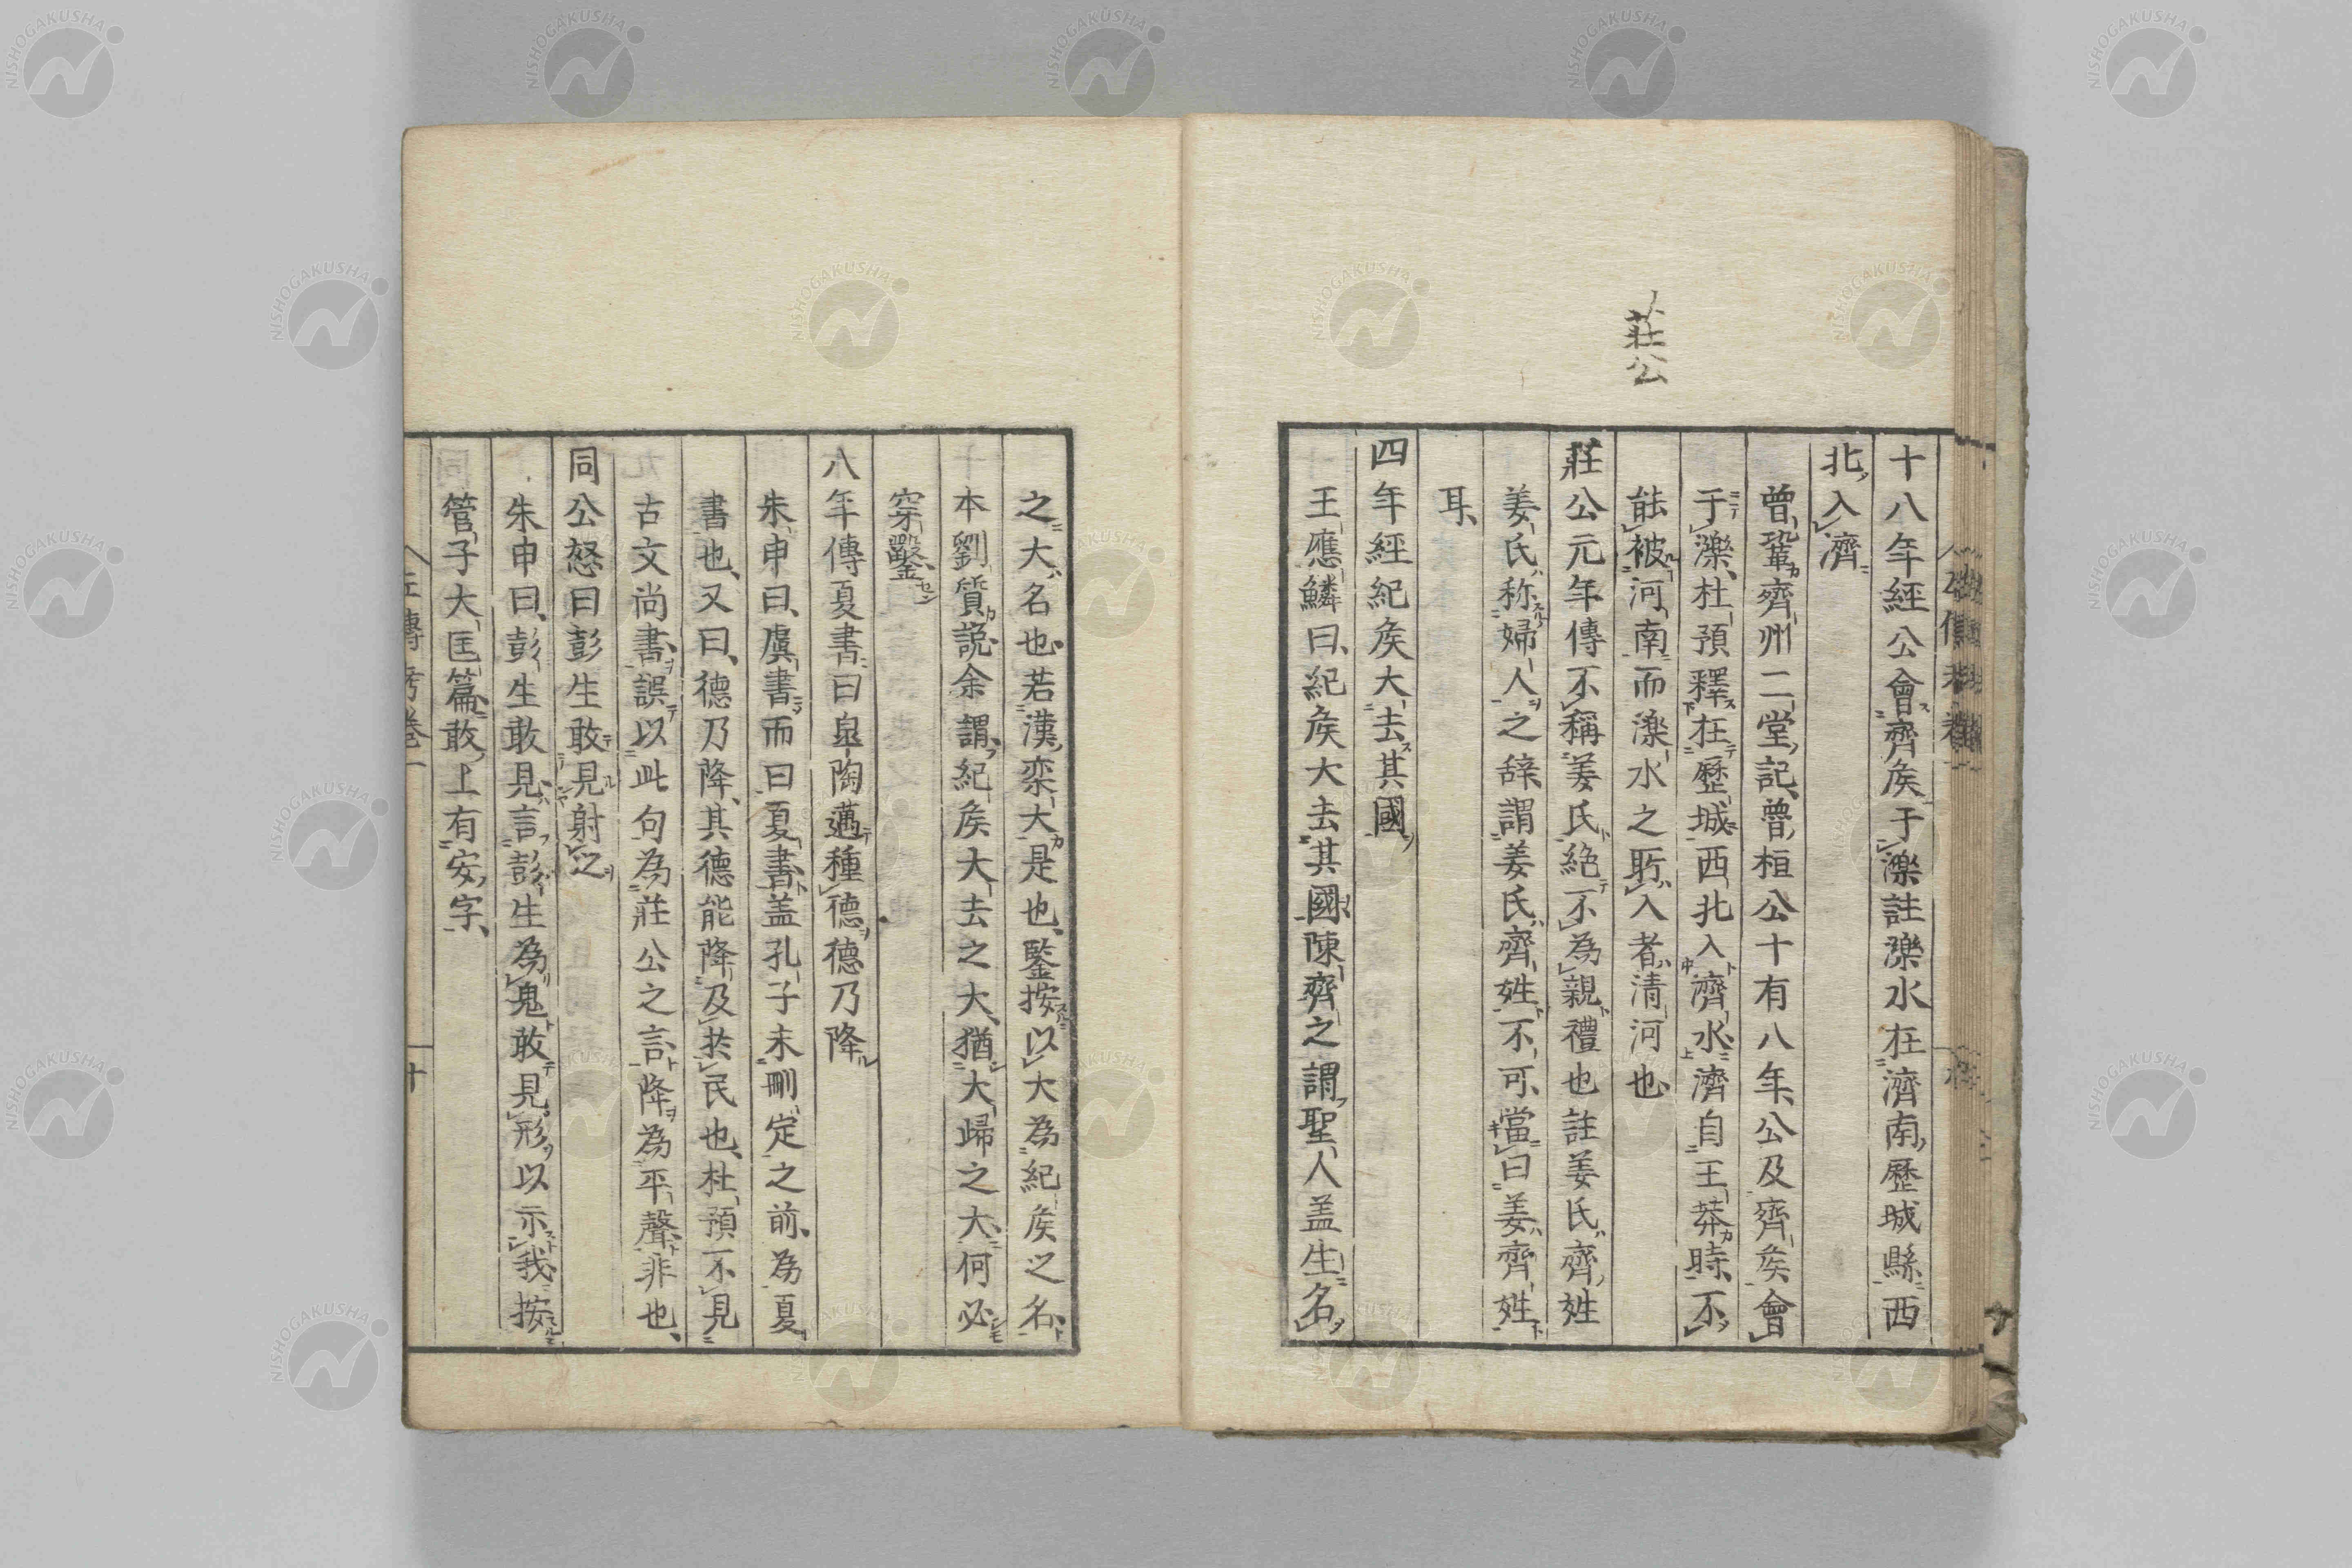 莊公
十八年經公會齊矦于濼註濼水在濟南歷城縣西
北入濟
曾鞏齊州二堂記曾桓公十有八年公及齊矦會
于濼杜預釋在歷城西北入濟水濟自王莽時不
能被河南而濼水之所入者清河也
莊公元年傳不稱姜氏絶不為親禮也註姜氏齊姓
姜氏称婦人之辞謂姜氏齊姓不可當曰姜齊姓
耳
四年經紀矦大去其國
王應鱗曰紀矦大去其國陳齊之謂聖人盖生名
之大名也若漢栾大是也鑒按以大為紀矦之名
本劉質說余謂紀矦大去之大猶大歸之大何必
穿鑿
八年傳夏書曰皐陶邁種德德乃降
朱申曰虞書而曰夏書盖孔子未刪定之前為夏
書也又曰德乃降其德能降及扵民也杜預不見
古文尚書誤以此句為莊公之言降為平聲非也
同公怒曰彭生敢見射之
朱申曰彭生敢見言彭生為鬼敢見形以示我按
管子大匡篇敢上有安字
左傳考卷一
十
NISHOGAKUSHA